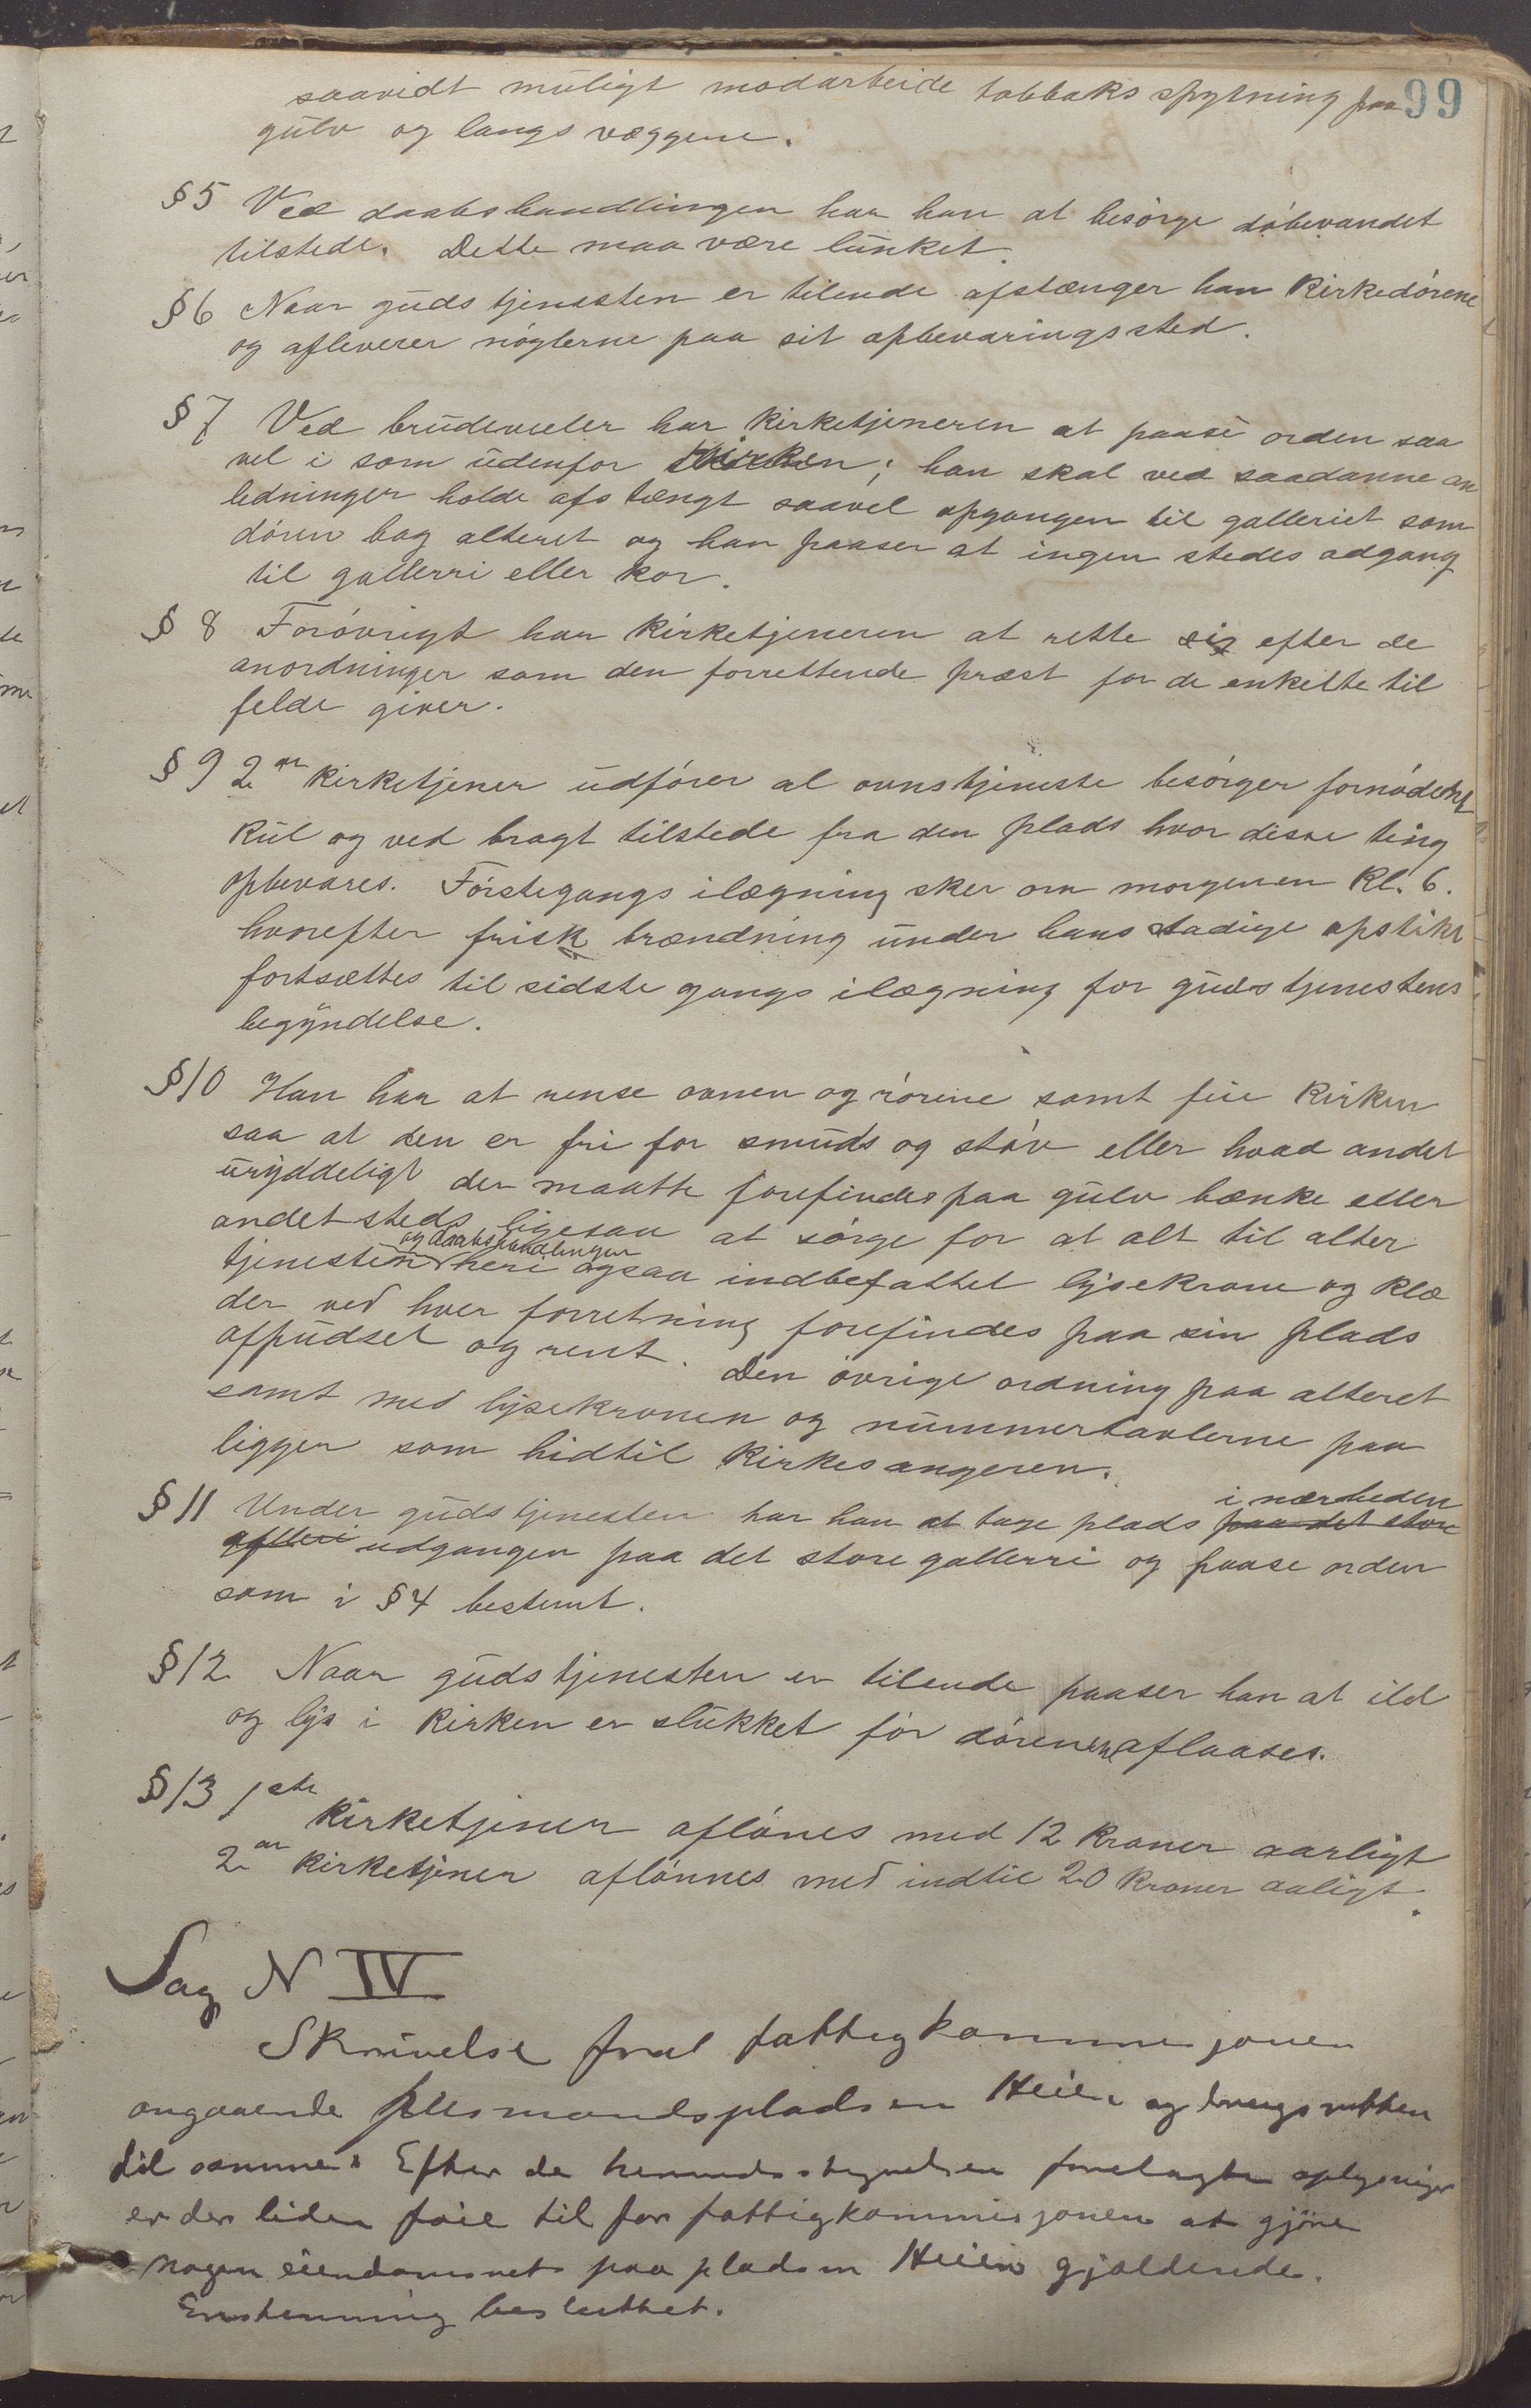 99
saavidt muligt modarbeide tobbaks spytning paa
gulv og langs væggene.
§5 Ved daabshandlingen har han at besørge døbevandet
tilstede. Dette maa være lunket.
§6 Naar guds tjenesten er tilende afstænger han Kirkedørene
og afleverer nøglerne paa sit opbevaringssted.
§7 Ved brudevieler har Kirketjeneren at paase orden saa
vel i som udenfor Kirken; han skal ved saadanne an
ledninger holde afstængt saavel opgangen til galleriet som
døren bag alteret og han paaser at ingen stedes adgang
til gallerri eller kor.
§ 8 Forøvrigt har Kirketjeneren at rette sig efter de
anordninger som den forrettende præst for de enkelte til
felde giver.
§ 9 2en Kirketjener udfører al ovnstjeneste besørger fornødent
Kul og ved bragt tilstede fra den plads hvor disse ting
opbevares. Førstegangs ilægning sker om morgenen Kl. 6.
hvorefter frisk brændning under hans stadige opsikt
fortsættes til sidste gangs ilægning for guds tjenestens
begyndelse.
§10 Han har at rense ovnen og rørene samt feie Kirken
saa at den er fri for smuds og støv eller hvad andet
uryddeligt der maatte forefindes paa gulv bænke eller
andet steds ligesaa at sørge for at alt til alter
og daabshandlingen
tjenesten heri ogsaa indbefattet lysekrone og klæ
der ved hver forretning forefindes paa sin plads
afpudset og rent. Den øvrige ordning paa alteret
samt med lysekronen og nummertavlerne paa
ligger som hidtil Kirkesangeren.
i nærheden
§ 11 Under guds tjenesten har han at tage plads paa det store
galleri udgangen paa det store gallerri og paase orden
som i §4 bestemt.
§12 Naar guds tjenesten er tilende paaser han at ild
og lys i Kirken er slukket før dørene aflaases.
§13 1ste Kirketjener aflønes med 12 Kroner aarligt
2en Kirketjener aflønnes med indtil 20 Kroner aaligt.
Sag N IV
Skrivelse fra fattigkommisjonen
angaaende pladsen Heien og brugsretten
til samme. Efter de herredsstyrelsen forelagte oplysniger
er der liden føie til for fattigkommisjonen at gjøre
nogen eiendomsret paa pladsen Heien gjældende.
Enstemmig besluttet.